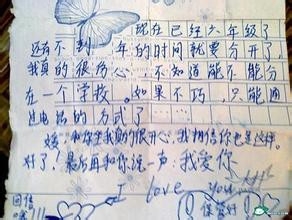 现在已经六年级了
还有不到一年的时间就要分开了
我真的很伤心，不知道能不能分
在一个学校。如果不巧，只能通
过电话的方式了……
和你坐我真的很开心，我相信你也是这样。
好了，最后再和你说一声：我爱你
I love you